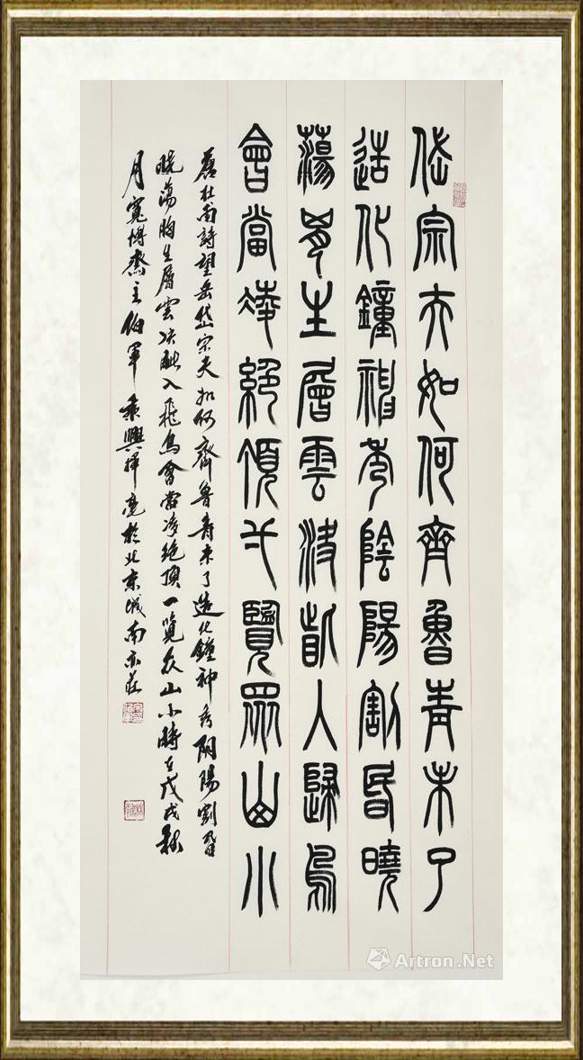 岱宗夫如何齊魯青未了
造化鐘神秀陰陽割昏曉
蕩胷生層雲決眥入歸鳥
會當凌絕頂弌覽眾山小
杜甫詩望岳岱宗夫如何齊魯青未了造化鐘神秀阴陽割昏
曉蕩胸生層雲決眦入飛鳥會當凌絕頂一览众山小時在戊戌秋
月寬博齋主伯軍興於北京城南亦莊
Artron.Net